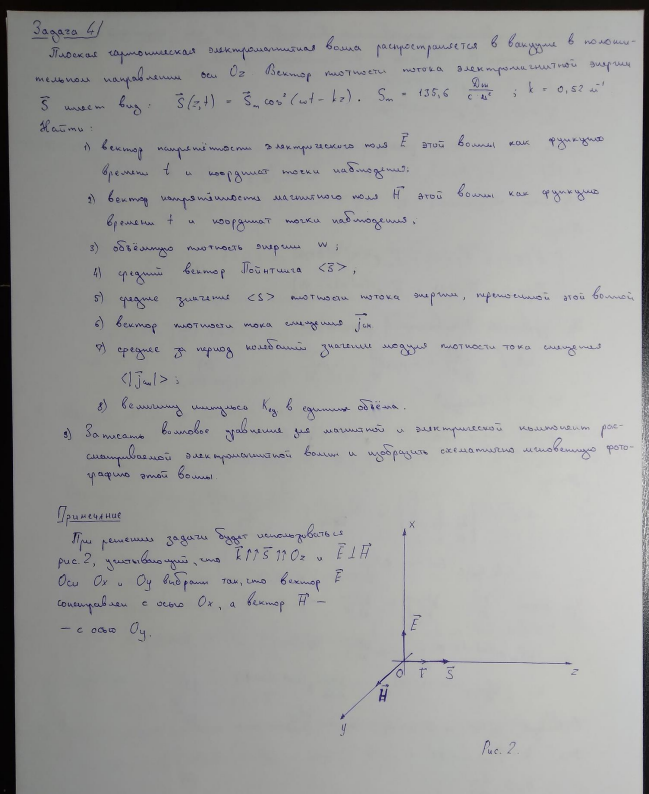 Задача 4)
Плоская гармоническая электромагнитная волна распространяется в вакууме в положи-
тельном направлении оси Oz Вектор плотности потока электромагнитной энергии
S⃗ имеет вид: S⃗(z,t) = S⃗m cos²(ωt - kz). Sm = 135,6 Дж/с·м² ; k = 0,52 м⁻¹
Найти:
1) вектор напряжённости электрического поля E⃗ этой волны как функцию
времени t и координат точки наблюдения;
2) вектор напряжённости магнитного поля H⃗ этой волны как функцию
времени t и координат точки наблюдения.
3) объёмную плотность энергии w ;
4) средний вектор Пойнтинга <S⃗> ,
5) среднее значение <S> плотности потока энергии, переносимой этой волной
6) вектор плотности тока смещения j⃗см
7) среднее за период колебаний значение модуля плотности тока смещения
<|j⃗см|> ;
8) величину импульса Kед в единице объёма.
9) Записать волновое уравнение для магнитной и электрической компонент рас-
сматриваемой электромагнитной волны и изобразить схематично мгновенную фото-
графию этой волны
Примечание
При решении задачи будет использоваться
рис. 2, учитывающий, что k⃗↑↑S⃗↑↑Oz и E⃗⊥H⃗
Оси Ox и Oy выбраны так, что вектор E⃗
сонаправлен с осью Ox, а вектор H⃗ –
– с осью Oy.
x
E⃗
O
S⃗
z
H⃗
y
Рис. 2